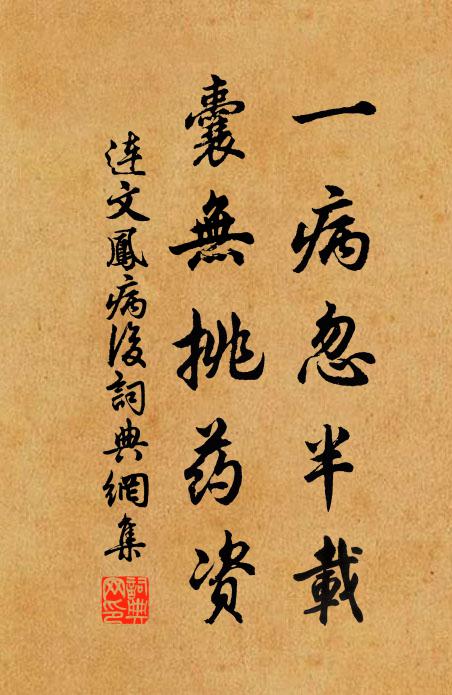 一病忽半載
囊無挑药资
連文鳳病後詞典網集
詞典網印